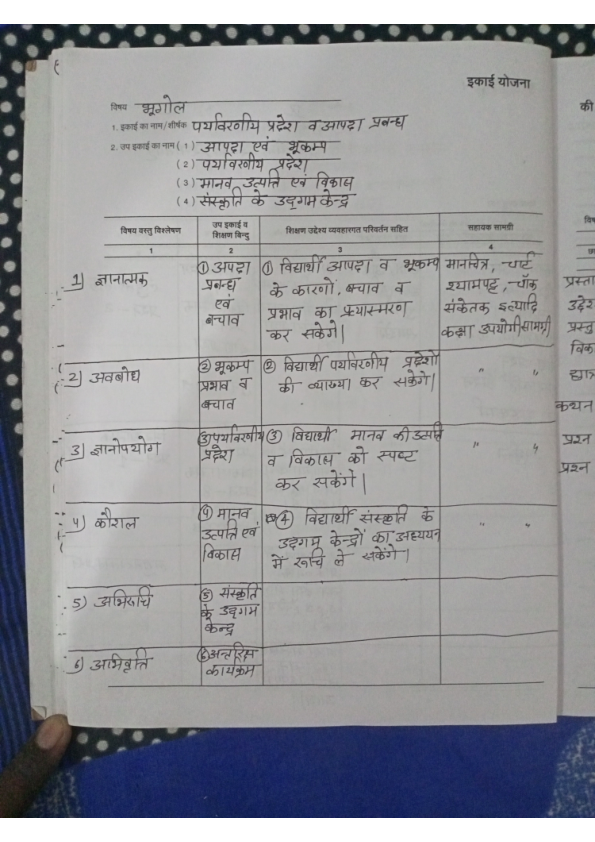 ९
इकाई योजना
विषय भूगोल
1. इकाई का नाम/शीर्षक पर्यावरणीय प्रदेश व आपदा प्रबन्ध
2. उप इकाई का नाम (1) आपदा एवं भूकम्प
(2) पर्यावरणीय प्रदेश
(3) मानव उत्पति एवं विकास
(4) संस्कृति के उद्गम केन्द्र
विषय वस्तु विश्लेषण
उप इकाई व शिक्षण बिन्दु
शिक्षण उद्देश्य व्यवहारगत परिवर्तन सहित
सहायक सामग्री
1 2 3 4
1) ज्ञानात्मक
① आपदा
प्रबन्ध
एवं
बचाव
① विद्यार्थी आपदा व भूकम्प
के कारणों, बचाव व
प्रभाव का प्रत्यास्मरण
कर सकेगे।
मानचित्र, चार्ट
श्यामपट्ट, चॉक
संकेतक इत्यादि
कक्षा उपयोगी सामग्री
2) अवबोध
② भूकम्प
प्रभाव व
बचाव
② विद्यार्थी पर्यावरणीय प्रदेशो
की व्याख्या कर सकेगे।
" "
3) ज्ञानोपयोग
③ पर्यावरणीय
प्रदेश
③ विद्यार्थी मानव की उत्पति
व विकास को स्पष्ट
कर सकेंगे।
" "
4) कौशल
④ मानव
उत्पति एवं
विकास
④ विद्यार्थी संस्कृति के
उद्गम केन्द्रों का अध्ययन
में रूचि ले सकेंगे।
" "
5) अभिरूचि
⑤ संस्कृति
के उद्गम
केन्द्र
6) अभिवृत्ति
⑥ अन्तरिक्ष
कार्यक्रम
की
विष
प्रस्ता
उद्देश
प्रस्तु
विक
छात्र
कथन
प्रश्न
प्रश्न